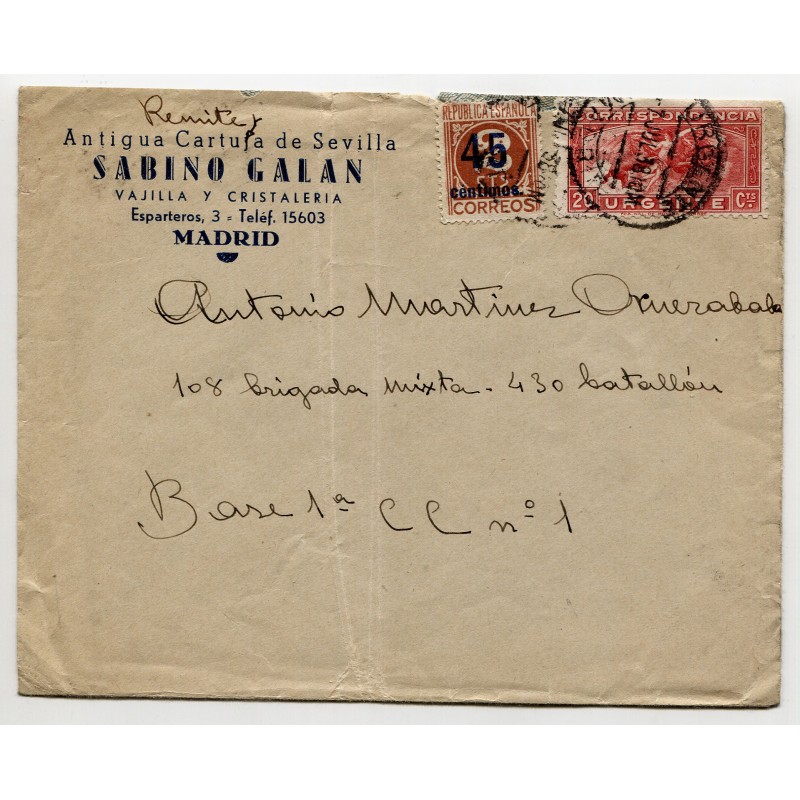 Remite
Antigua Cartuja de Sevilla
SABINO GALAN
VAJILLA Y CRISTALERIA
Esparteros, 3 - Teléf. 15603
MADRID
REPUBLICA ESPAÑOLA
45
céntimos.
CORREOS
CORRESPONDENCIA
URGENTE
20 Cts.
Antonio Martinez
108 brigada mixta - 430 batallón
Base 1ª CC nº 1